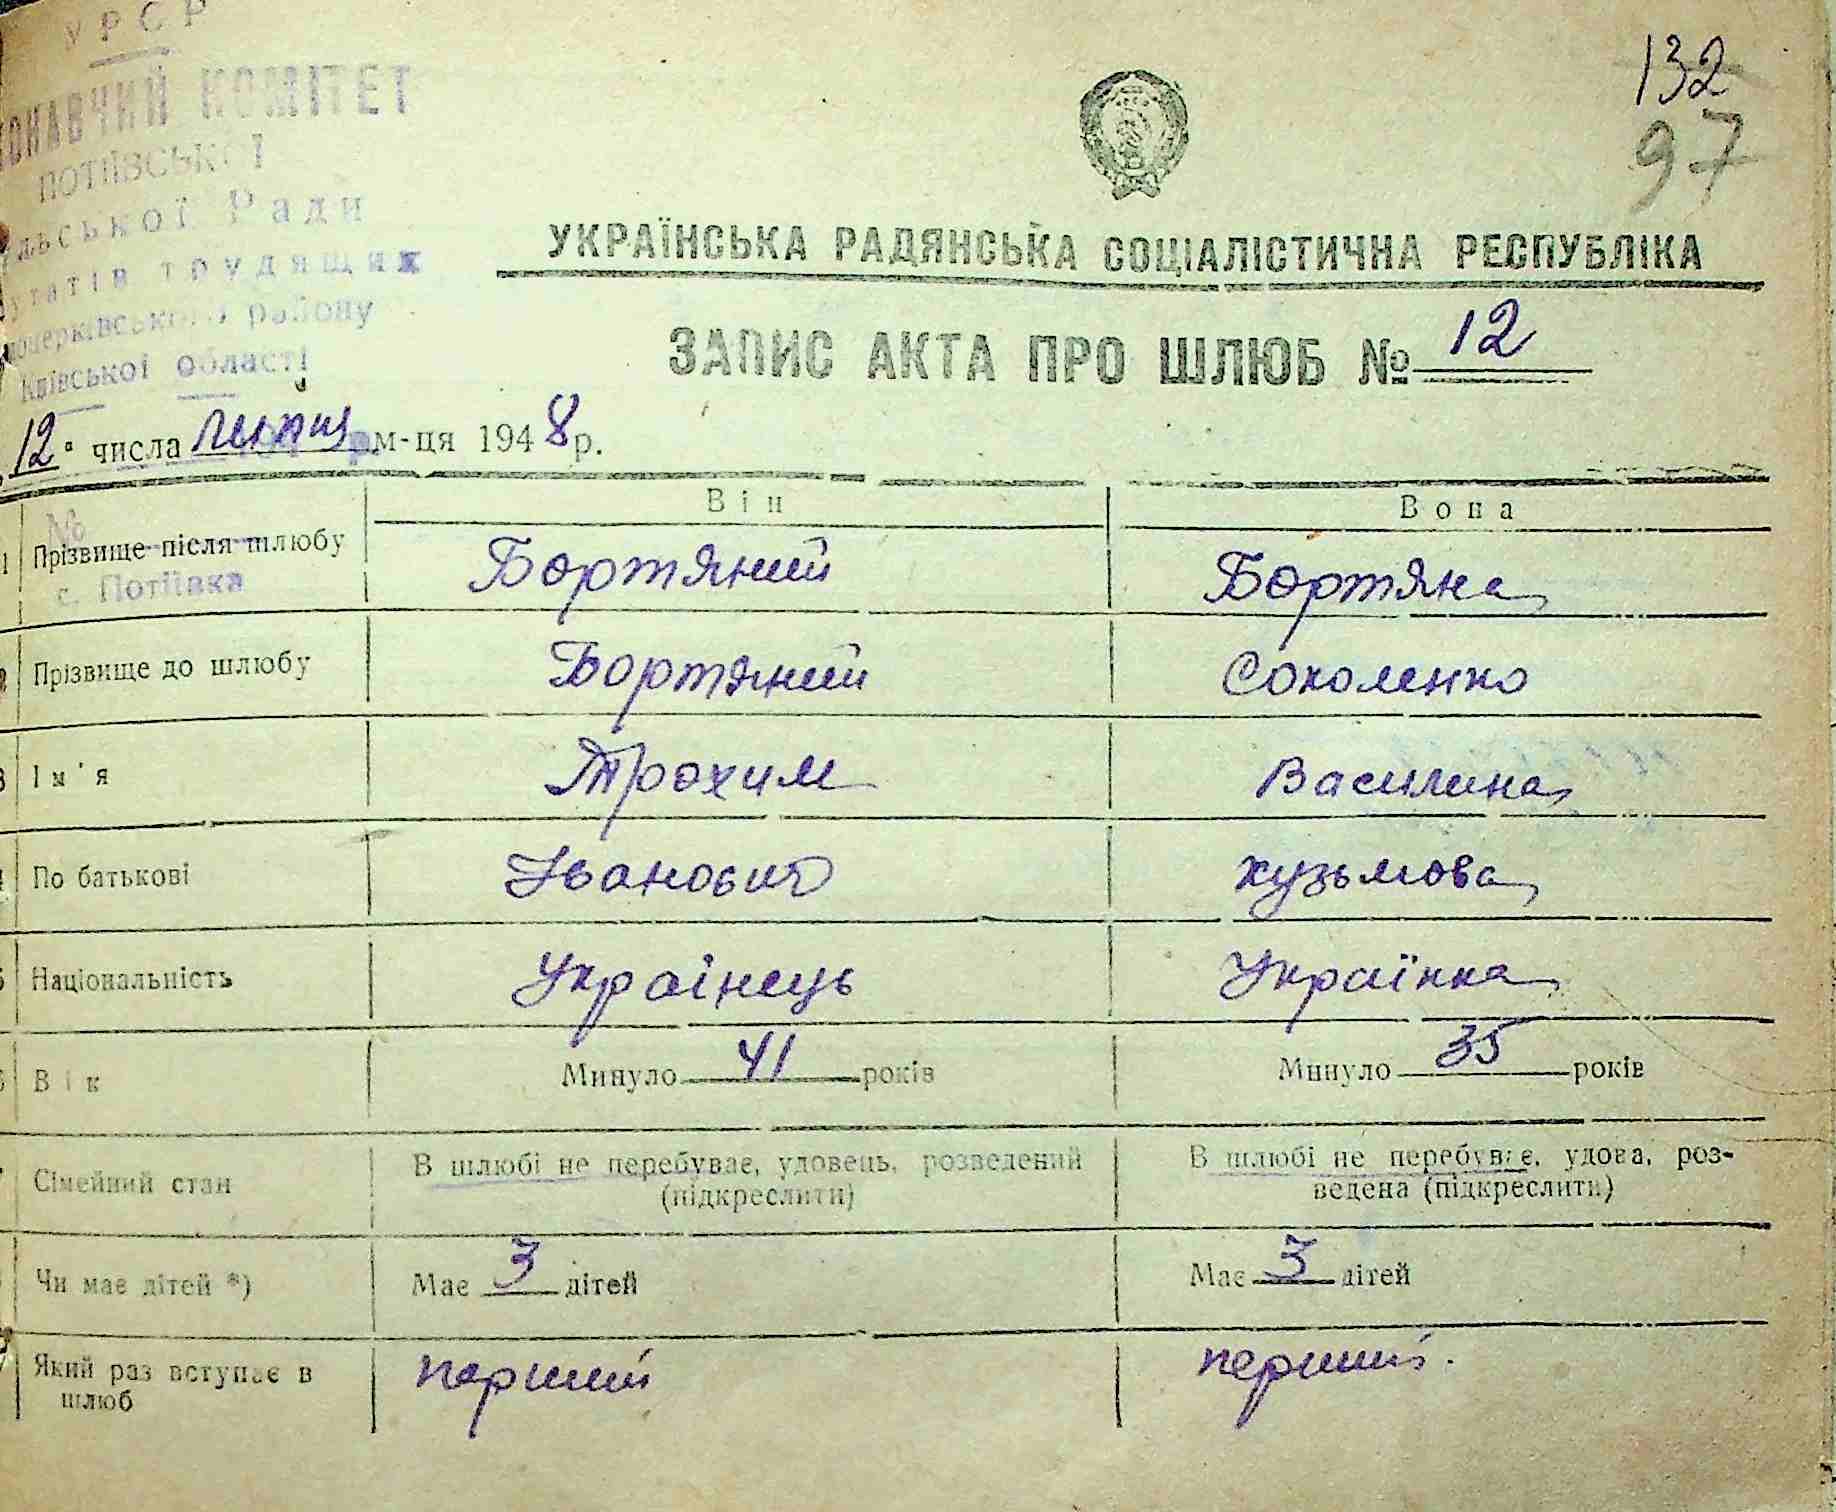 УРСР
КОМІТЕТ
ПОТІЇВСЬКОЇ
Ради
трудящих
району
Київської області
132
97
УКРАЇНСЬКА РАДЯНСЬКА СОЦІАЛІСТИЧНА РЕСПУБЛІКА
ЗАПИС АКТА ПРО ШЛЮБ № 12
12 числа липня м-ця 1948 р.
Він Вона
1 Прізвище після шлюбу Бортяний Бортяна
№
с. Потіївка
2 Прізвище до шлюбу Бортяний Соколенко
3 Ім'я Трохим Василина
4 По батькові Іванович Кузьмова
5 Національність Українець Українка
6 Вік Минуло 41 років Минуло 35 років
7 Сімейний стан В шлюбі не перебуває, удовець, розведений В шлюбі не перебуває, удова, роз-
(підкреслити) ведена (підкреслити)
Чи має дітей *) Має 3 дітей Має 3 дітей
Який раз вступає в перший перший.
шлюб